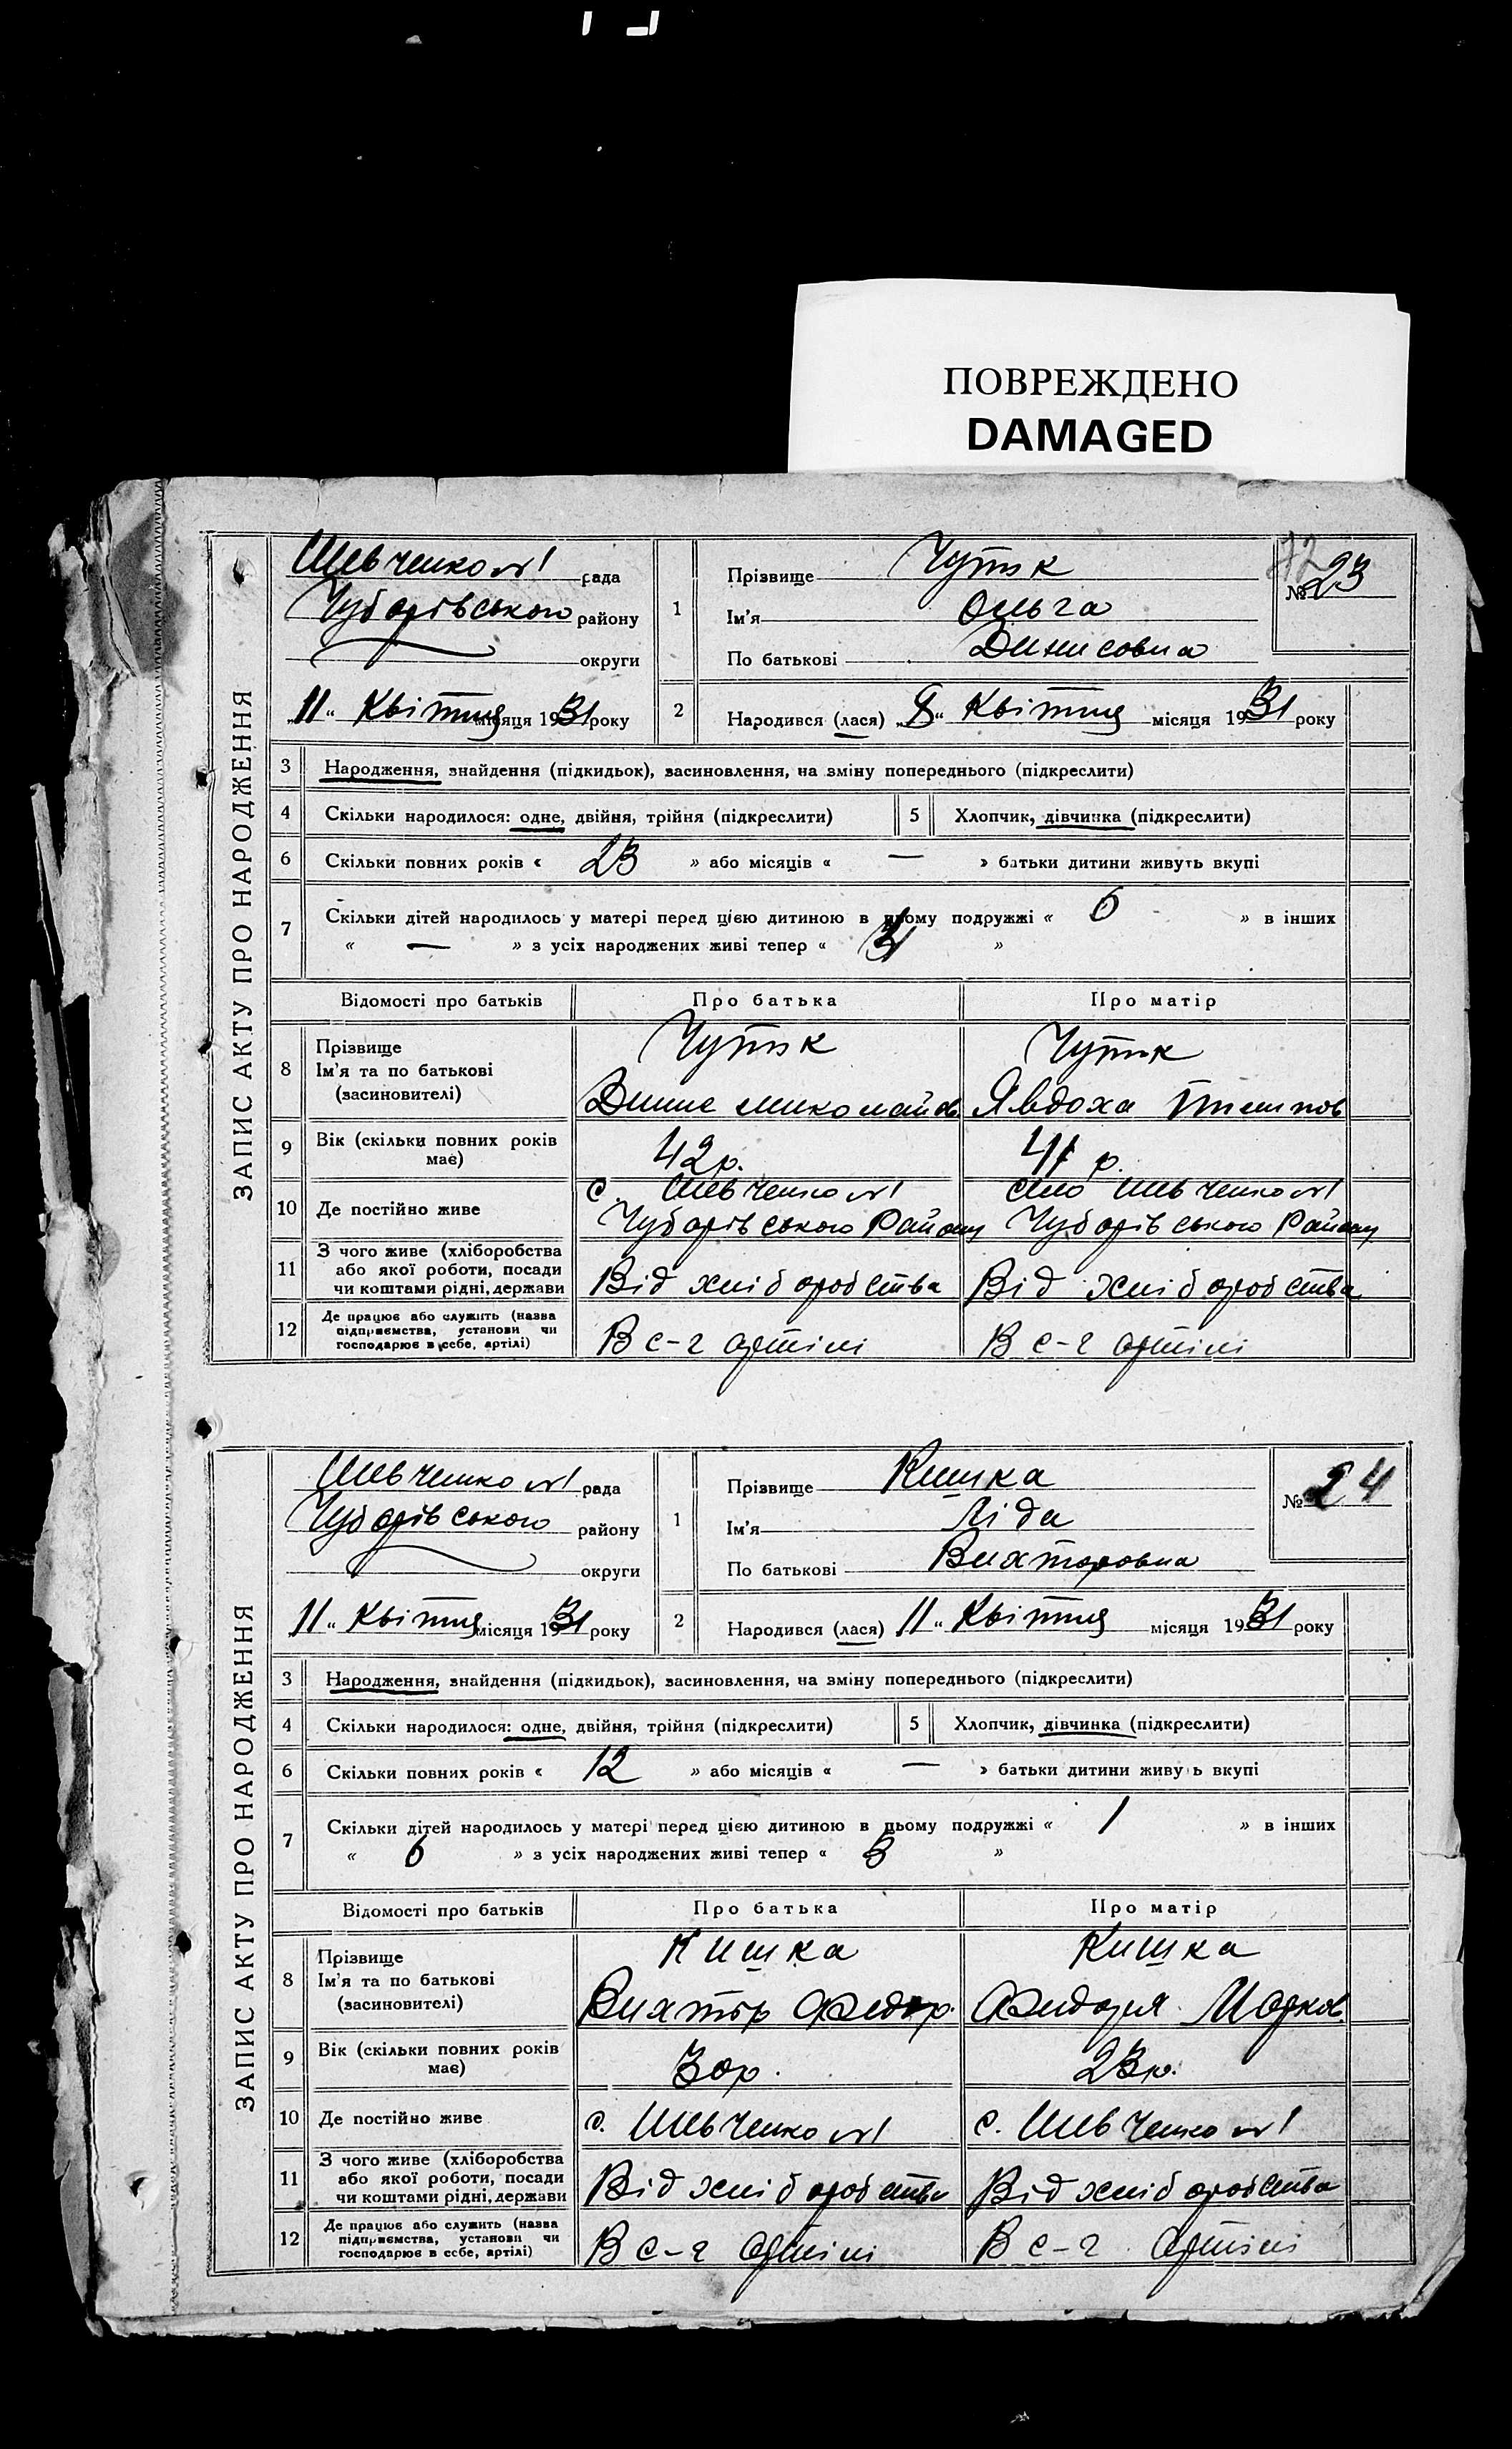 ПОВРЕЖДЕНО
DAMAGED
ЗАПИС АКТУ ПРО НАРОДЖЕННЯ
Шевченко №1 рада
Чубарівського району
округи
„11“ Квітня місяця 1931 року
1
Прізвище
Ім'я Ольга
По батькові Денисовна
72
№ 23
2 Народився (лася) „8“ Квітня місяця 1931 року
3 Народження, знайдення (підкидьок), засиновлення, на зміну попереднього (підкреслити)
4 Скільки народилося: одне, двійня, трійня (підкреслити) 5 Хлопчик, дівчинка (підкреслити)
6 Скільки повних років « 23 » або місяців « — » батьки дитини живуть вкупі
7 Скільки дітей народилось у матері перед цією дитиною в цьому подружжі « 6 » в інших
« — » з усіх народжених живі тепер « »
Відомості про батьків Про батька Про матір
8 Прізвище
Ім'я та по батькові
(засиновителі)
Денис Миколайов Явдоха
9 Вік (скільки повних років має) 42 р. 41 р.
10 Де постійно живе
с. Шевченко №1 село Шевченко №1
Чубарівського Району Чубарівського Району
11 З чого живе (хліборобства
або якої роботи, посади
чи коштами рідні, держави
Від хліборобства Від хліборобства
12 Де працює або служить (назва
підприємства, установи чи
господарює в себе, артілі)
В с-г артілі В с-г артілі
ЗАПИС АКТУ ПРО НАРОДЖЕННЯ
Шевченко №1 рада
Чубарівського району
округи
„11“ Квітня місяця 1931 року
1
Прізвище Кишка
Ім'я Ліда
По батькові Вихторовна
№ 24
2 Народився (лася) 11“ Квітня місяця 1931 року
3 Народження, знайдення (підкидьок), засиновлення, на зміну попереднього (підкреслити)
4 Скільки народилося: одне, двійня, трійня (підкреслити) 5 Хлопчик, дівчинка (підкреслити)
6 Скільки повних років « 12 » або місяців « — » батьки дитини живу ь вкупі
7 Скільки дітей народилось у матері перед цією дитиною в цьому подружжі « 1 » в інших
« 6 » з усіх народжених живі тепер « 3 »
Відомості про батьків Про батька Про матір
8 Прізвище
Ім'я та по батькові
(засиновителі)
Кишка Кишка
Вихтор Федор. Марков.
9 Вік (скільки повних років має) 30р. 23р.
10 Де постійно живе с. Шевченко №1 с. Шевченко №1
11 З чого живе (хліборобства
або якої роботи, посади
чи коштами рідні, держави
Від хліборобства Від хліборобства
12 Де працює або служить (назва
підприємства, установи чи
господарює в себе, артілі)
В с-г артілі В с-г артілі